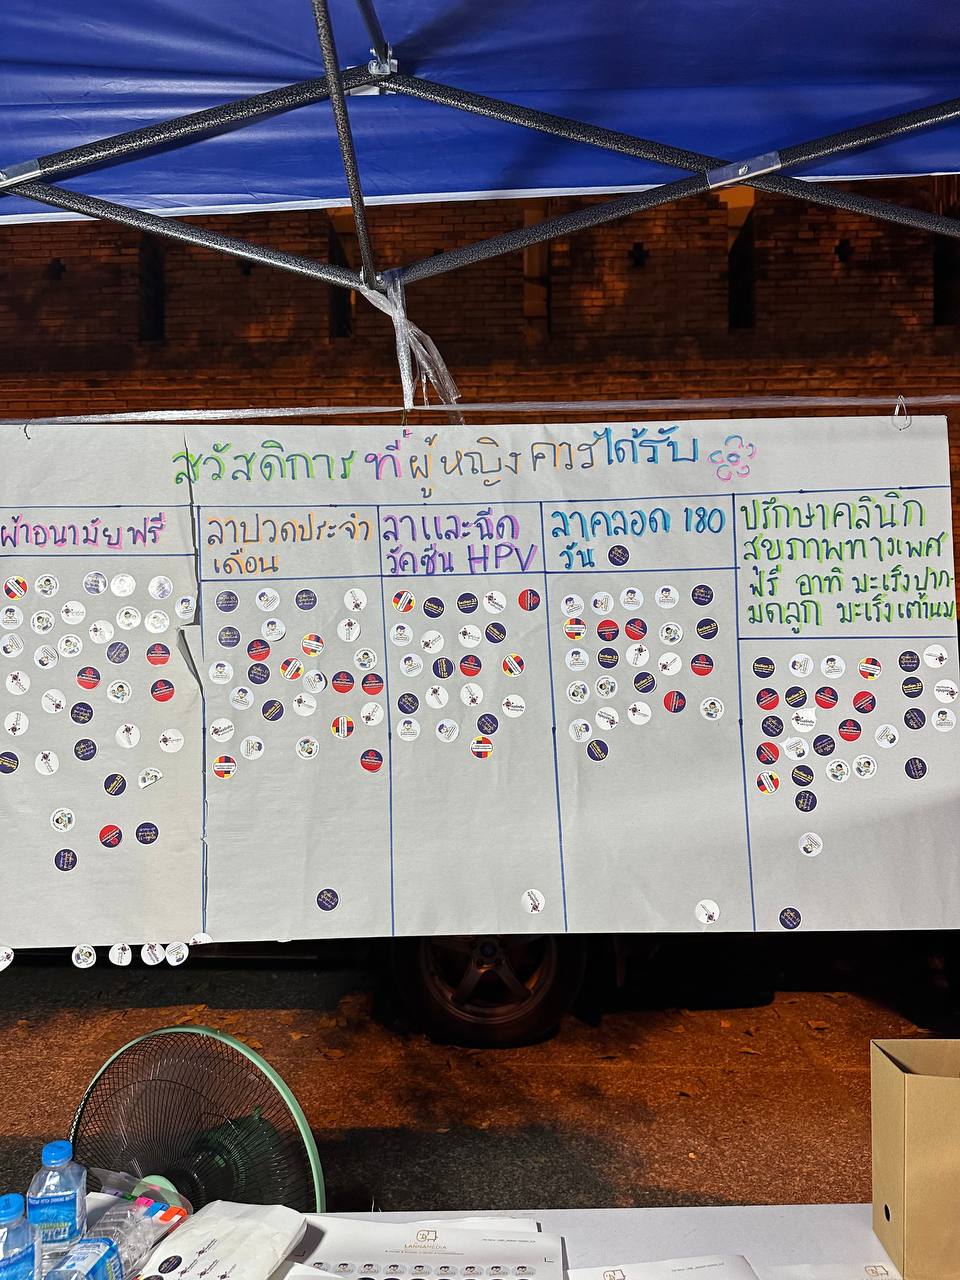 สวัสดิการที่ผู้หญิงควรได้รับ
ผ้าอนามัยฟรี
ลาปวดประจำ
เดือน
ลาและฉีด
วัคซีน HPV
ลาคลอด 180
วัน
ปรึกษาคลินิก
สุขภาพทางเพศ
ฟรี อาทิ มะเร็งปาก-
มดลูก มะเร็งเต้านม
LANNAMEDIA